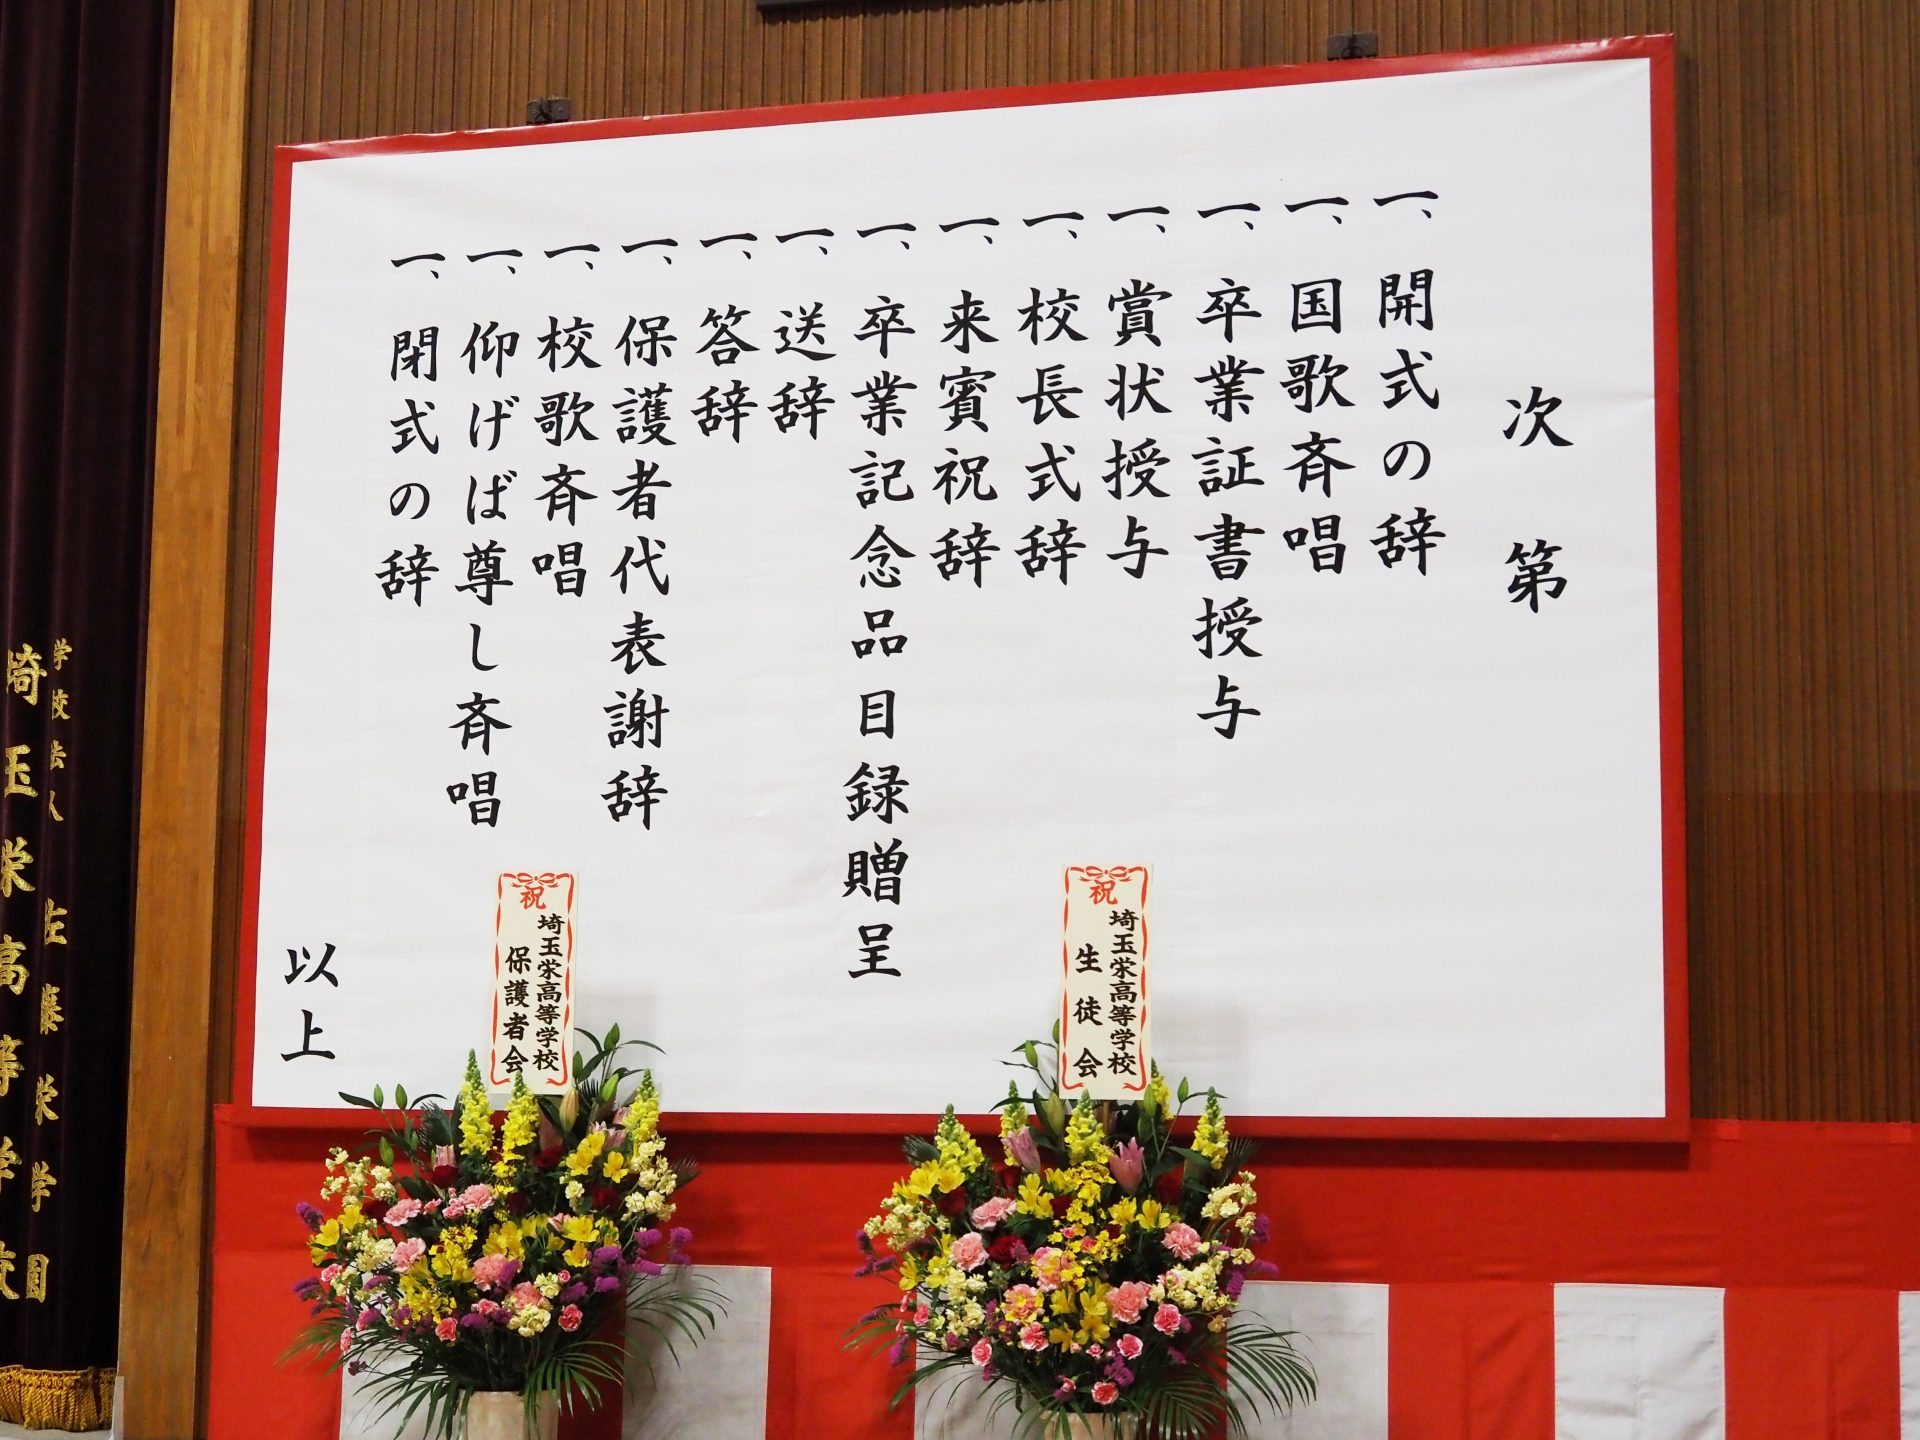 次第
一、開式の辞
一、国歌斉唱
一、卒業証書授与
一、賞状授与
一、校長式辞
一、来賓祝辞
一、卒業記念品目録贈呈
一、送辞
一、答辞
一、保護者代表謝辞
一、校歌斉唱
一、仰げば尊し斉唱
一、閉式の辞
以上
祝
埼玉栄高等学校
生徒会
祝
埼玉栄高等学校
保護者会
学校法人 佐藤栄学園
埼玉栄高等学校